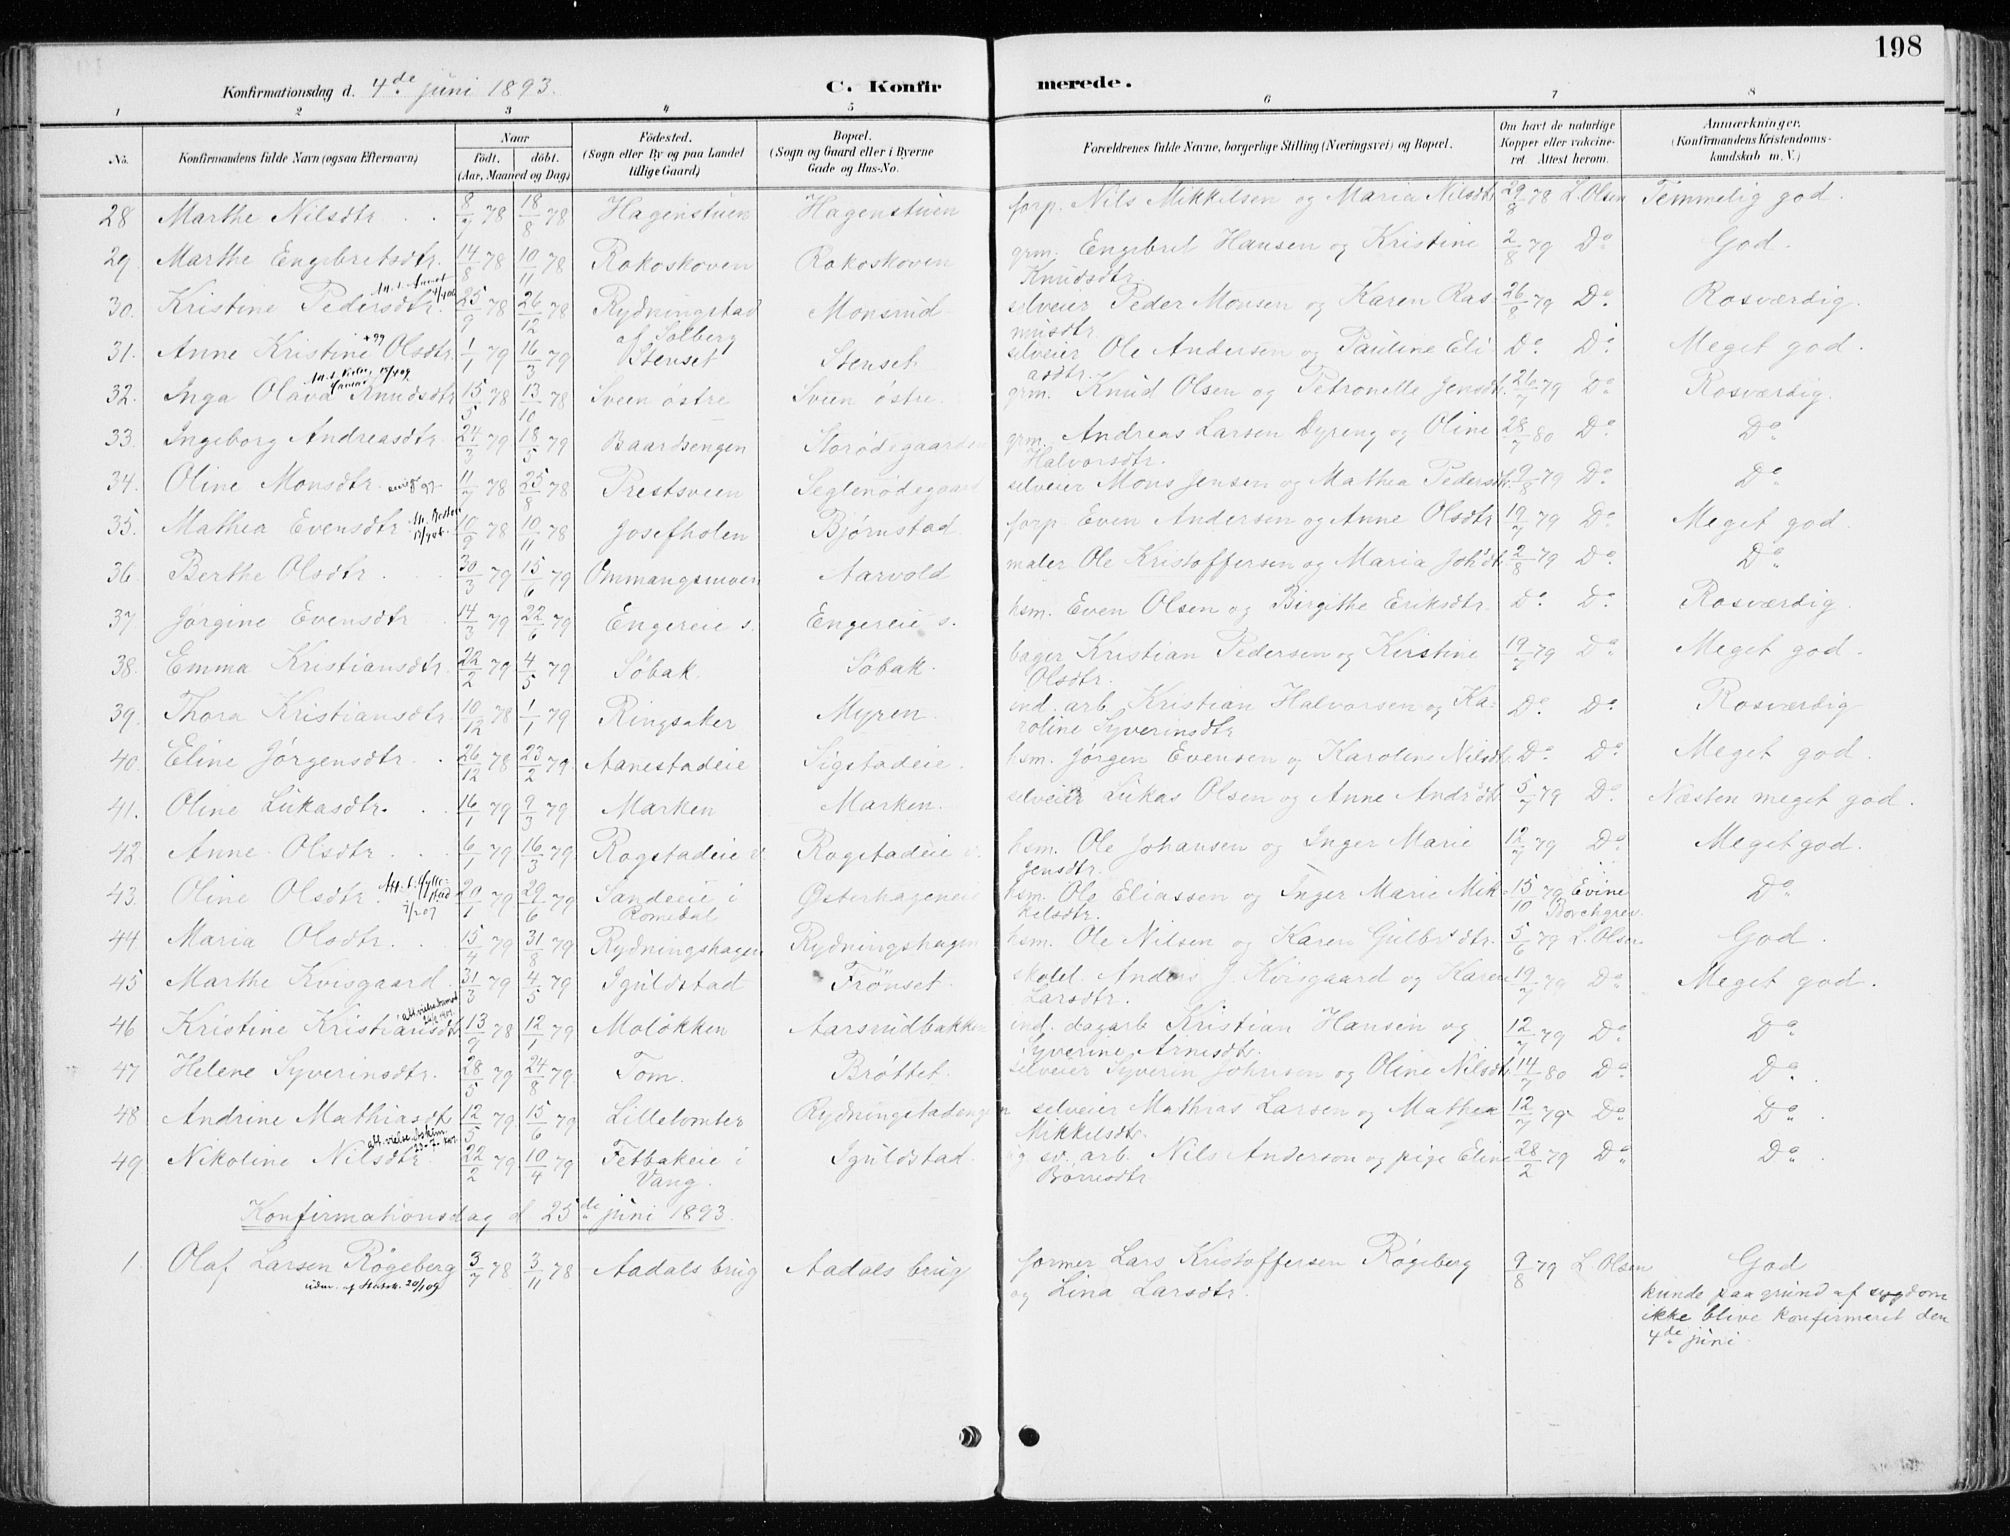 198
Konfirmationsdag d. 4de juni 1893. C. Konfir merede.
1 2 3 4 5 6 7 8
No. Konfirmandens fulde Navn (ogsaa Efternavn) Naar födt. döbt. (Aar, Maaned og Dag) Födested. (Sogn eller By og paa Landet tillige Gaard) Bopæl. (Sogn og Gaard eller i Byerne Gade og Hus-No. Forældrenes fulde Navne, borgerlige Stilling (Næringsvei) og Bopæl. Om havt de naturlige Kopper eller vakcineret Attest herom. Anmærkninger. (Konfirmandens Kristendomskundskab m. V.)
28 Marthe Nilsdtr. 8/7 78 18/8 78 Hagenstuen Hagenstuen forp. Nils Mikkelsen og Maria Nilsdtr 29/8 78 L. Olsen Temmelig god.
29. Marthe Engebretsdtr. 14/8 78 10/11 78 Rokoskoven Rokoskoven grm. Engebret Hansen og Kristine Knudsdtr. 2/8 79 Do God.
30. Kristine Pedersdtr. 25/9 78 26/12 78 Rydningstad af Solberg Monsrud selveier Peder Monsen og Karen Rasmusdtr. 26/9 79 Do Rosværdig.
31. Anne Kristine Olsdtr. 1/1 79 16/3 79 Stenset Stenset. selveier Ole Andersen og Pauline Eliasdtr. Do. Do. Meget god.
32. Inga Olava Knudsdtr 15/5 78 13/10 78 Sveen östre Sveen östre. grm. Knud Olsen og Petronelle Jensdtr. 26/7 79 Do Rosværdig.
33. Ingeborg Andreasdtr. 24/3 79 18/5 79 Baardsengen Storödegaarden grm. Andreas Larsen Dyreng og Oline Halvorsdtr. 28/7 80 Do. Do
34. Oline Monsdtr. 11/7 78 25/8 78 Prestsveen Seglenödegaard selveier Mons Jensen og Mathea Pedersdtr. 9/8 79 Do Do
35. Mathea Evensdtr 10/9 78 10/11 78 Josefholen Björnstad. forp. Even Andersen og Anne Olsdtr 19/7 79 Do. Meget god.
36. Berthe Olsdtr. 30/3 79 15/6 79 Ommangsmoen Aarvold maler Ole Kristoffersen og Maria Johsdtr. 2/8 79 Do Do
37 Jørgine Evensdtr 14/3 79 22/6 79 Engereie s. Engereie s. hsm. Even Olsen og Birgithe Eriksdtr. Do. Do. Rosværdig.
38. Emma Kristiansdtr. 22/2 79 4/5 79 Söbak. Söbak. bager Kristian Pedersen og Kirstine Olsdtr. 19/7 79 Do. Meget god.
39. Thora Kristiansdtr. 10/12 78 1/1 79 Ringsaker Myren. ind. arb. Kristian Halvorsen og Karoline Syverinsdtr Do. Do. Rosværdig
40. Eline Jörgensdtr. 26/12 78 23/2 79. Aanestadeie Sigstadeie. hsm. Jörgen Evensen og Karoline Nilsdtr. Do. Do. Meget god.
41. Oline Lukasdtr. 16/1 79 9/3 79 Marken Marken. selveier Lukas Olsen og Anne Andrsdtr 5/7 79 Do. Næsten meget god.
42 Anne Olsdtr 6/1 79 16/3 79. Rogstadeie v. Rogstadeie v. hsm. Ole Johansen og Inger Marie Jensdtr. 12/7 79 Do Meget god.
43. Oline Olsdtr. 20/1 79 29/6 79 Sandeeie i Romedal Østerhageneie hsm. Ole Eliassen og Inger Marie Mikkelsdtr. 15/10 79 Evine Borchgrev. Do
44. Maria Olsdtr. 15/4 79 31/8 79 Rydningshagen Rydningshagen hsm. Ole Nilsen og Karen Gulbrsdtr. 5/6 79 L. Olsen God.
45 Marthe Kvisgaard. 31/3 79 4/5 79 Iguldstad Frönset. skolel. Anders J. Kvisgaard og Karen Larsdtr. 19/7 79 Do Meget god.
46 Kristine Kristiansdtr 13/9 78 12/1 79 Molökken Aarsrudbakken ind. dagarb Kristian Hansen og Syverine Arnesdtr. 12/7 79 Do Do
47 Helene Syverinsdtr. 28/5 79 24/8 79. Tom. Bröttet. selveier Syverin Johnsen og Oline Nilsdtr. 14/7 80 Do. Do.
48 Andrine Mathiasdtr 12/5 79 15/6 79 Lillelomter Rydningstadengen selveier Mathias Larsen og Mathea Mikkelsdtr. 12/7 79 Do Do.
49 Nikoline Nilsdtr. 22/2 79 10/4 79 Fetbakeie i Vang. Iguldstad. ug sv. arb. Nils Anderson og pige Eline Börresdtr 28/2 79 Do. Do.
Konfirmationsdag d 25de juni 1893.
1. Olaf Larsen Rögeberg 3/7 78 3/11 78 Aadals brug Aadals brug former Lars Kristoffersen Rögeberg og Lina Larsdtr. 9/8 79 L. Olsen God
kunde paa grund af sygdom
ikke blive konfirmeret den
4de juni.